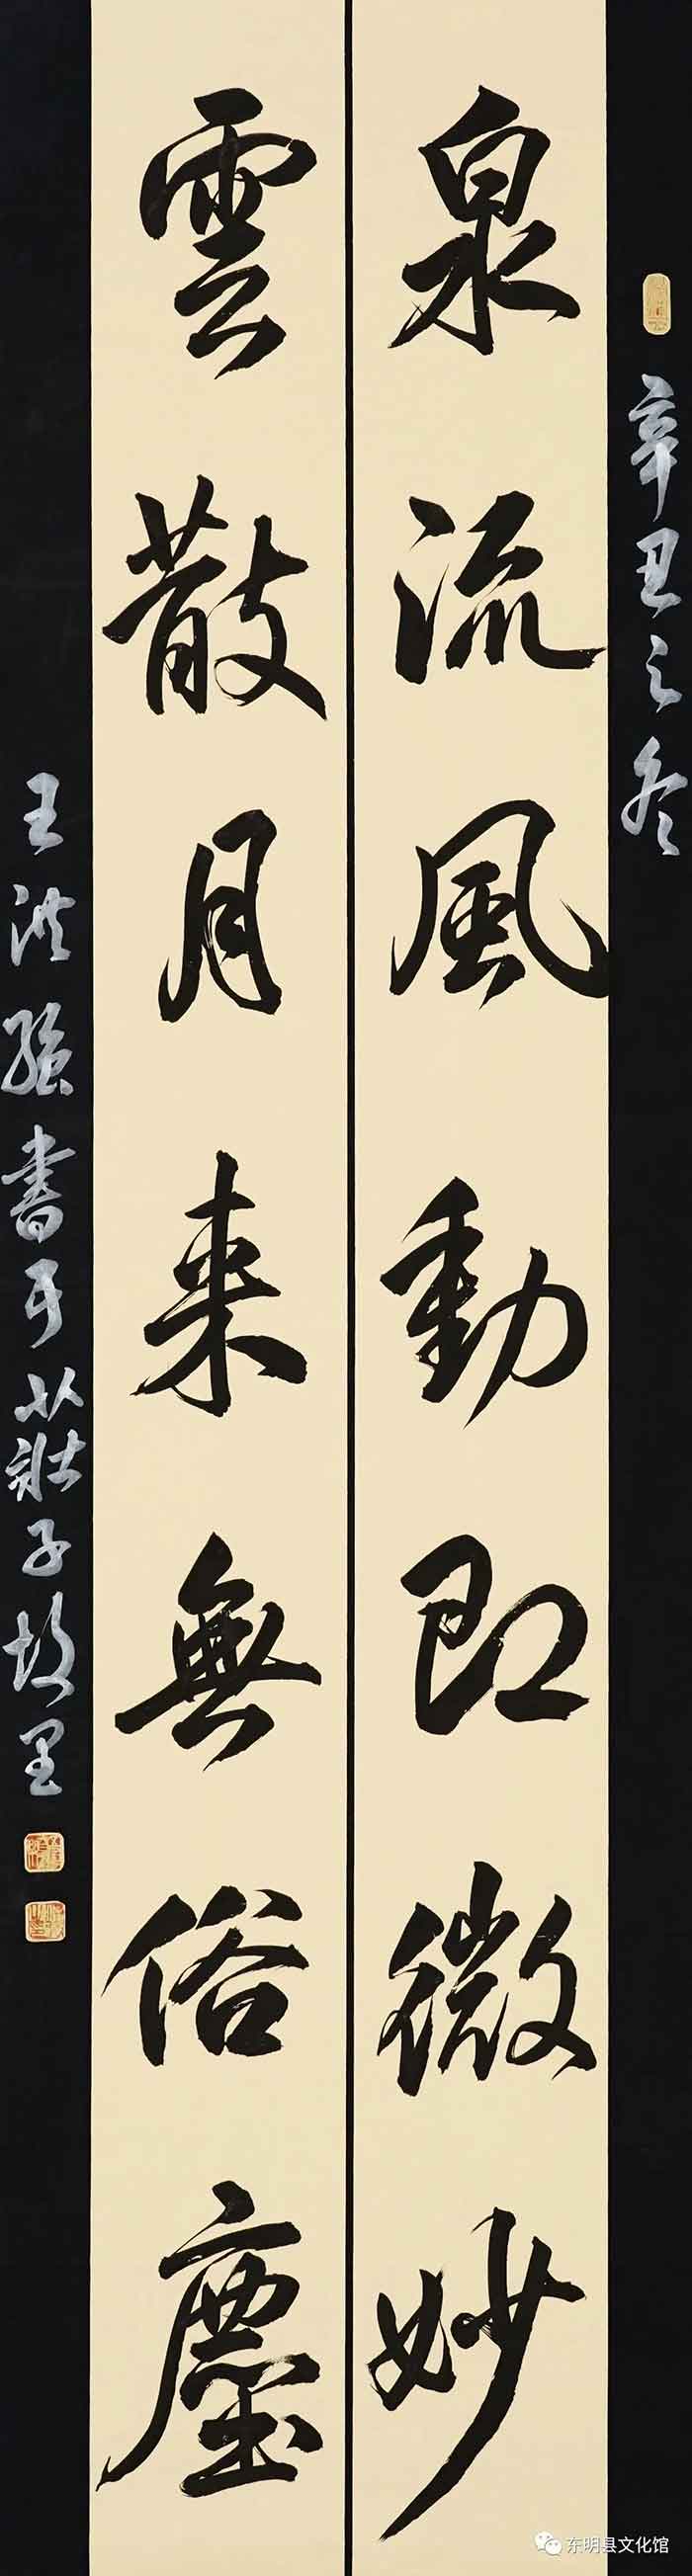 辛丑之冬
泉流風動即微妙
雲散月来無俗塵
王洪强書于莊子故里
东明县文化馆